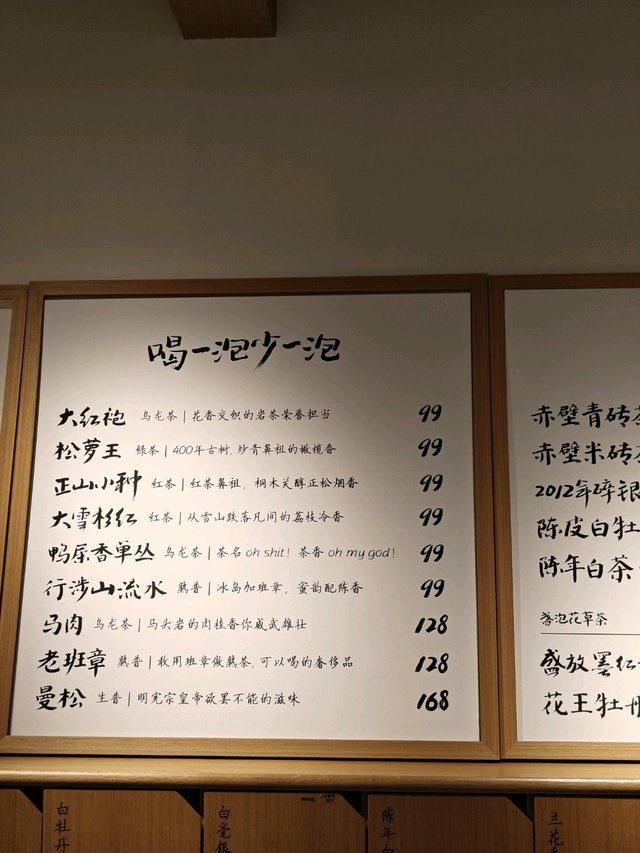 喝一泡少一泡
大红袍 乌龙茶 | 花香交织的岩茶荣誉担当 99
松萝王 绿茶 | 400年古树,炒青鼻祖的橄榄香 99
正山小种 红茶 | 红茶鼻祖,桐木关醇正松烟香 99
大雪杉红 红茶 | 从雪山跌落凡间的荔枝冷香 99
鸭屎香单丛 乌龙茶 | 茶名oh shit!茶香oh my god! 99
行涉山流水 熟普 | 冰岛加班章,蜜韵配陈香 99
马肉 乌龙茶 | 马头岩的肉桂香你威武雄壮 128
老班章 熟普 | 敢用班章做熟茶,可以喝的奢侈品 128
曼松 生普 | 明宪宗皇帝欲罢不能的滋味 168
赤壁青砖茶
赤壁米砖茶
2012年碎银
陈皮白牡
陈年白茶
盛放墨红
花王牡丹
白牡丹
白毫银
陈年白
兰花